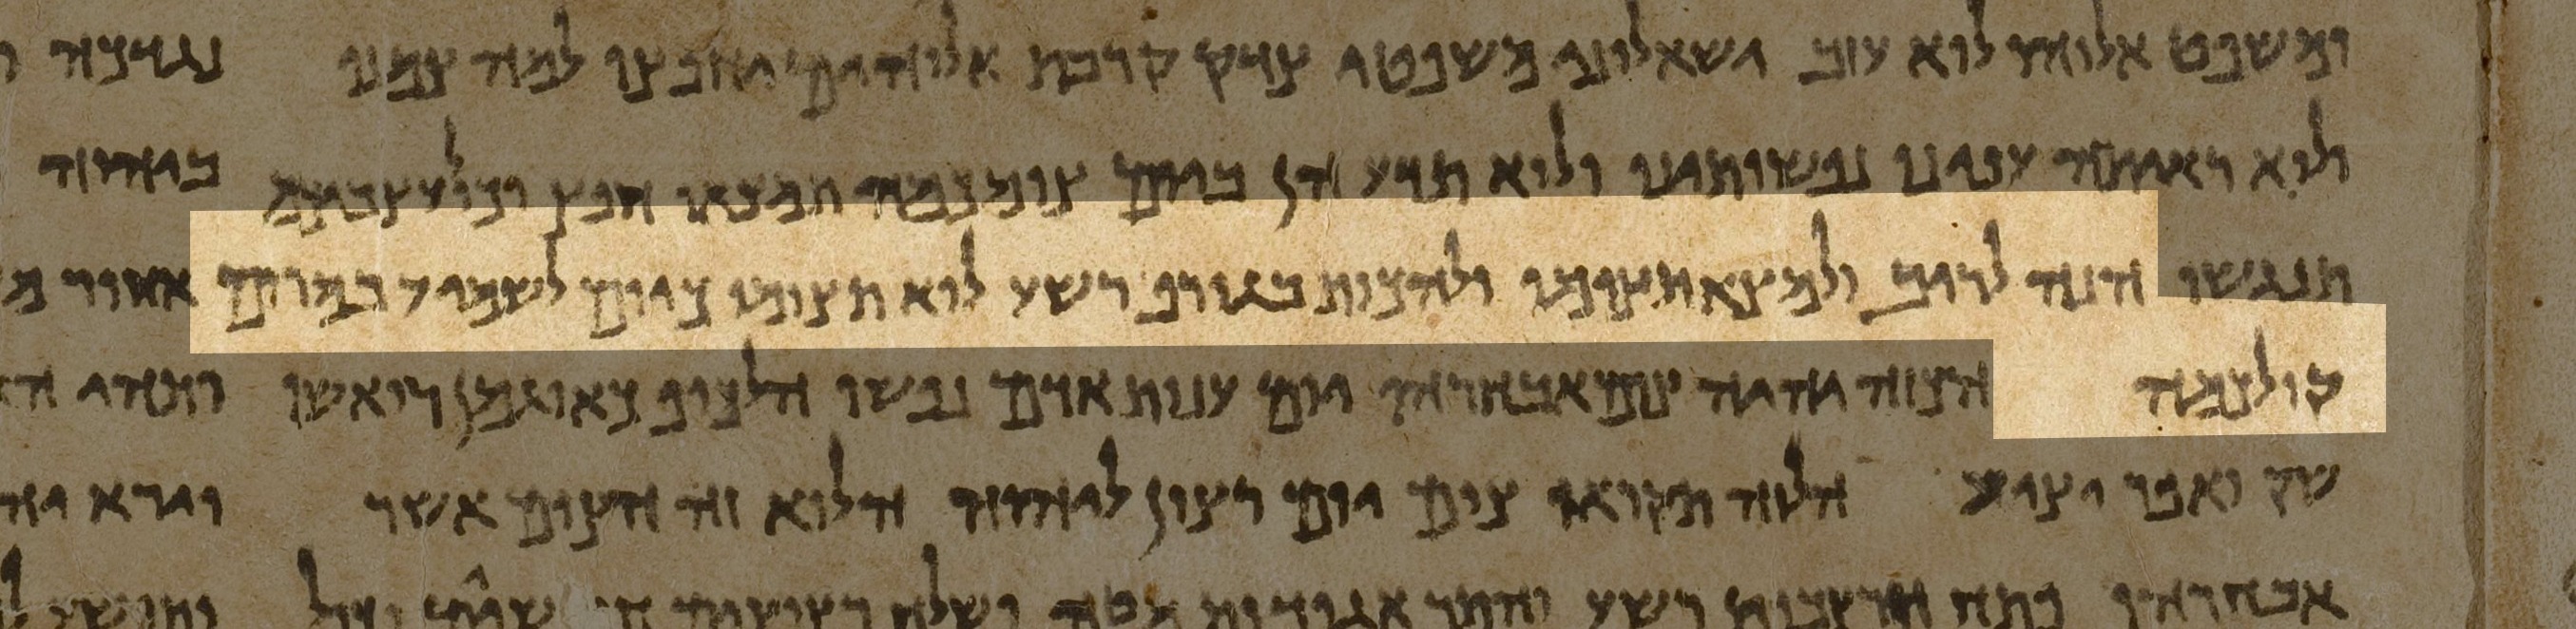 ומשפט אלוהו לוא עזב ישאלוני משפטי צדק קרבת אלוהים יחפצו למה צמנו
ולוא ראיתה ענינו נפשותינו ולוא תדע הן ביום צומכמה תמצאו חפץ וכול עצביכמה
תנגשו הנה לריב ולמצא תצומו ולהכות בגורף רשע לוא תצומו כיום לשמיע במרום
קולכמה הכזה יהיה צום אבחרהו יום ענות אדם נפשו הלכוף כאוגמן רואשו
שק ואפר יציע הלזה תקראו צום יום רצון ליהוה הלוא זה הצום אשר
אבחרהו פתח חרצבות רשע והתר אגודות מטה ושלח רצוצים וכול
ביהוה
אחור
ותהיה
וירא